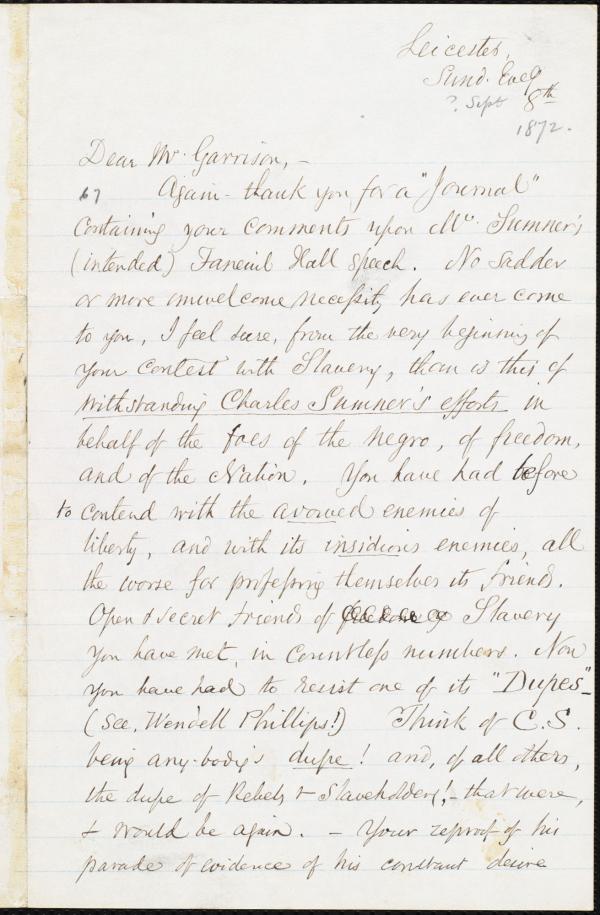 Leicester,
Sund. Eveg
? Sept 8th
1872.
Dear Mr. Garrison, -
67 Again - thank you for a "Journal"
containing your comments upon Mr. Sumner's
(intended) Faneuil Hall speech. No sadder
or more unwelcome necessity has ever come
to you, I feel sure, from the very beginning of
your contest with Slavery, than is this of
withstanding Charles Sumner's efforts in
behalf of the foes of the negro, of freedom,
and of the Nation. You have had before
to contend with the avowed enemies of
liberty, and with its insidious enemies, all
the worse for professing themselves its friends.
Open & secret friends of Slavery
you have met, in countless numbers. Now
you have had to resist one of its "Dupes"-
(See, Wendell Phillips!) Think of C.S.
being any-body's dupe! and, of all others,
the dupe of Rebels & Slaveholders! - that were,
& would be again. - Your reproof of his
parade of evidence of his constant desire